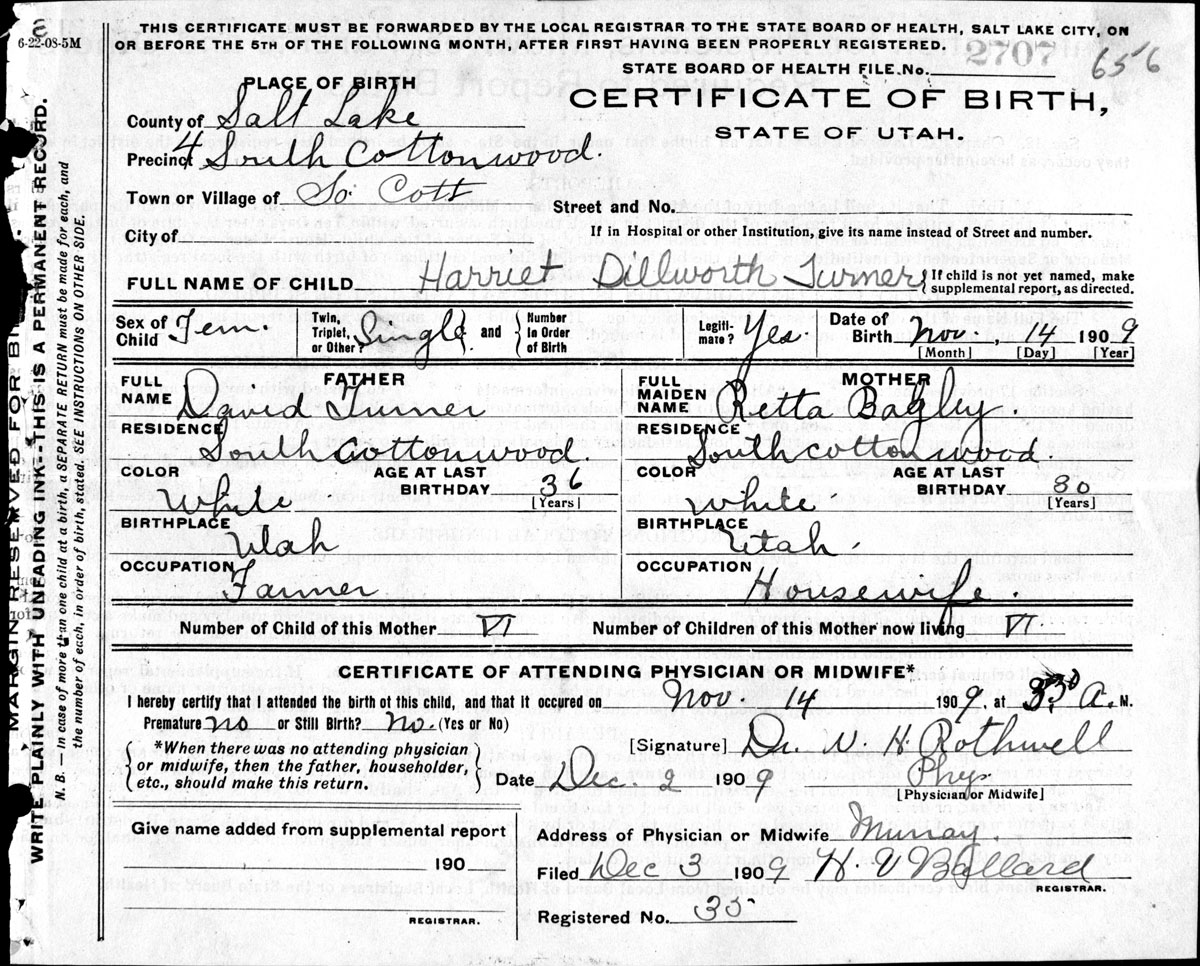 6-22-08-5M
THIS CERTIFICATE MUST BE FORWARDED BY THE LOCAL REGISTRAR TO THE STATE BOARD OF HEALTH, SALT LAKE CITY, ON
OR BEFORE THE 5TH OF THE FOLLOWING MONTH, AFTER FIRST HAVING BEEN PROPERLY REGISTERED.
STATE BOARD OF HEALTH FILE No. 2707 656
PLACE OF BIRTH
CERTIFICATE OF BIRTH,
STATE OF UTAH.
County of Salt Lake
Precinct 4 South Cottonwood.
Town or Village of So Cott
Street and No.
City of
If in Hospital or other Institution, give its name instead of Street and number.
FULL NAME OF CHILD Harriet Dillworth Turner { If child is not yet named, make
supplemental report, as directed.
Sex of Child Fem. Twin, Triplet, or Other? Single and Number In Order of Birth Legiti-mate? Yes Date of Birth Nov., 14 1909
[Month] [Day] [Year]
FATHER
FULL NAME David Turner
RESIDENCE South Cottonwood.
COLOR White AGE AT LAST BIRTHDAY 36 [Years]
BIRTHPLACE Utah
OCCUPATION Farmer
MOTHER
FULL MAIDEN NAME Retta Bagley.
RESIDENCE South Cottonwood.
COLOR White AGE AT LAST BIRTHDAY 30 [Years]
BIRTHPLACE Utah
OCCUPATION Housewife.
Number of Child of this Mother VI Number of Children of this Mother now living VI
CERTIFICATE OF ATTENDING PHYSICIAN OR MIDWIFE*
I hereby certify that I attended the birth of this child, and that it occured on Nov. 14 1909, at 330 A. M.
Premature no or Still Birth? No. (Yes or No)
*When there was no attending physician
or midwife, then the father, householder,
etc., should make this return.
[Signature] Dr. W. H. Rothwell
Date Dec 2 1909 Phys
[Physician or Midwife]
Give name added from supplemental report
190
REGISTRAR.
Address of Physician or Midwife Murray.
Filed Dec 3 1909 H. V
REGISTRAR.
Registered No. 35
MARGIN RESERVED FOR
WRITE PLAINLY WITH UNFADING INK--THIS IS A PERMANENT RECORD.
N. B. — In case of more than one child at a birth, a SEPARATE RETURN must be made for each, and
the number of each, in order of birth, stated. SEE INSTRUCTIONS ON OTHER SIDE.